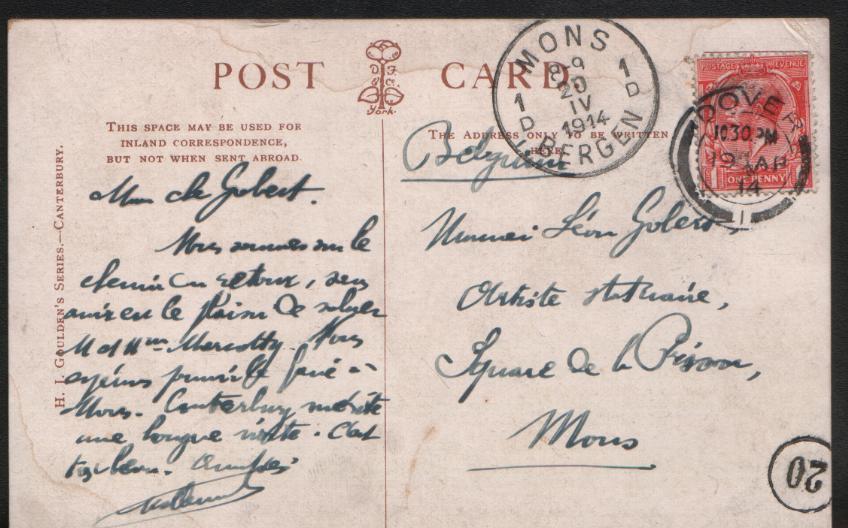 POST CARD
York.
THIS SPACE MAY BE USED FOR
INLAND CORRESPONDENCE,
BUT NOT WHEN SENT ABROAD.
THE ADDRESS ONLY TO BE WRITTEN
HERE.
H. J. GOULDEN'S SERIES.—CANTERBURY.
MONS
8-9
20
IV
1914
1 D
1 D
BERGEN
POSTAGE REVENUE
ONE PENNY
DOVER
10 30 PM
19 AP
14
1
Mon cher Gobert.
Nous sommes sur le
chemin du retour, sans
avoir eu le plaisir de saluer
M et Mme
Mons. Canterbury mérite
une longue visite. C'est
très beau. Amitiés
Belgium
Monsieur Léon Gobert,
Artiste statuaire,
Square de la Prison,
Mons
20